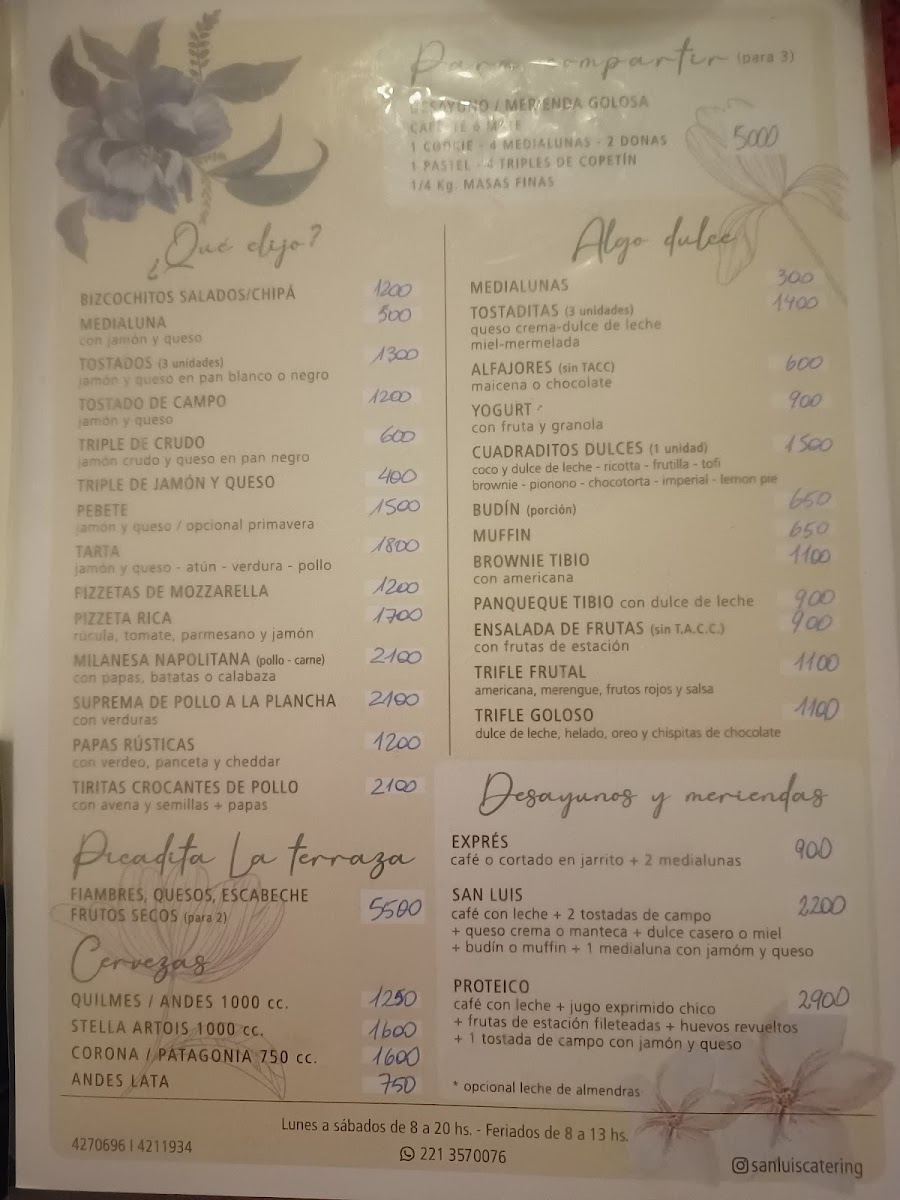 Para compartir (para 3)
DESAYUNO / MERIENDA GOLOSA
CAFÉ TÉ ó MATE
1 COOKIE - 4 MEDIALUNAS - 2 DONAS 5000
1 PASTEL - 4 TRIPLES DE COPETÍN
1/4 Kg. MASAS FINAS
¿Qué elijo?
BIZCOCHITOS SALADOS/CHIPÁ 1200
MEDIALUNA 500
con jamón y queso
TOSTADOS (3 unidades) 1300
jamón y queso en pan blanco o negro
TOSTADO DE CAMPO 1200
jamón y queso
TRIPLE DE CRUDO 600
jamón crudo y queso en pan negro
TRIPLE DE JAMÓN Y QUESO 400
PEBETE 1500
jamón y queso / opcional primavera
TARTA 1800
jamón y queso - atún - verdura - pollo
PIZZETAS DE MOZZARELLA 1200
PIZZETA RICA 1700
rúcula, tomate, parmesano y jamón
MILANESA NAPOLITANA (pollo - carne) 2100
con papas, batatas o calabaza
SUPREMA DE POLLO A LA PLANCHA 2100
con verduras
PAPAS RÚSTICAS 1200
con verdeo, panceta y cheddar
TIRITAS CROCANTES DE POLLO 2100
con avena y semillas + papas
Picadita La terraza
FIAMBRES, QUESOS, ESCABECHE
FRUTOS SECOS (para 2) 5500
Cervezas
QUILMES / ANDES 1000 cc. 1250
STELLA ARTOIS 1000 cc. 1600
CORONA / PATAGONIA 750 cc. 1600
ANDES LATA 750
Algo dulce
MEDIALUNAS 300
TOSTADITAS (3 unidades) 1400
queso crema-dulce de leche
miel-mermelada
ALFAJORES (sin TACC) 600
maicena o chocolate
YOGURT 900
con fruta y granola
CUADRADITOS DULCES (1 unidad) 1500
coco y dulce de leche - ricotta - frutilla - tofi
brownie - pionono - chocotorta - imperial - lemon pie
BUDÍN (porción) 650
MUFFIN 650
BROWNIE TIBIO 1100
con americana
PANQUEQUE TIBIO con dulce de leche 900
ENSALADA DE FRUTAS (sin T.A.C.C.) 900
con frutas de estación
TRIFLE FRUTAL 1100
americana, merengue, frutos rojos y salsa
TRIFLE GOLOSO 1100
dulce de leche, helado, oreo y chispitas de chocolate
Desayunos y meriendas
EXPRÉS 900
café o cortado en jarrito + 2 medialunas
SAN LUIS 2200
café con leche + 2 tostadas de campo
+ queso crema o manteca + dulce casero o miel
+ budín o muffin + 1 medialuna con jamóm y queso
PROTEICO 2900
café con leche + jugo exprimido chico
+ frutas de estación fileteadas + huevos revueltos
+ 1 tostada de campo con jamón y queso
* opcional leche de almendras
Lunes a sábados de 8 a 20 hs. - Feriados de 8 a 13 hs.
4270696 | 4211934
221 3570076
sanluiscatering